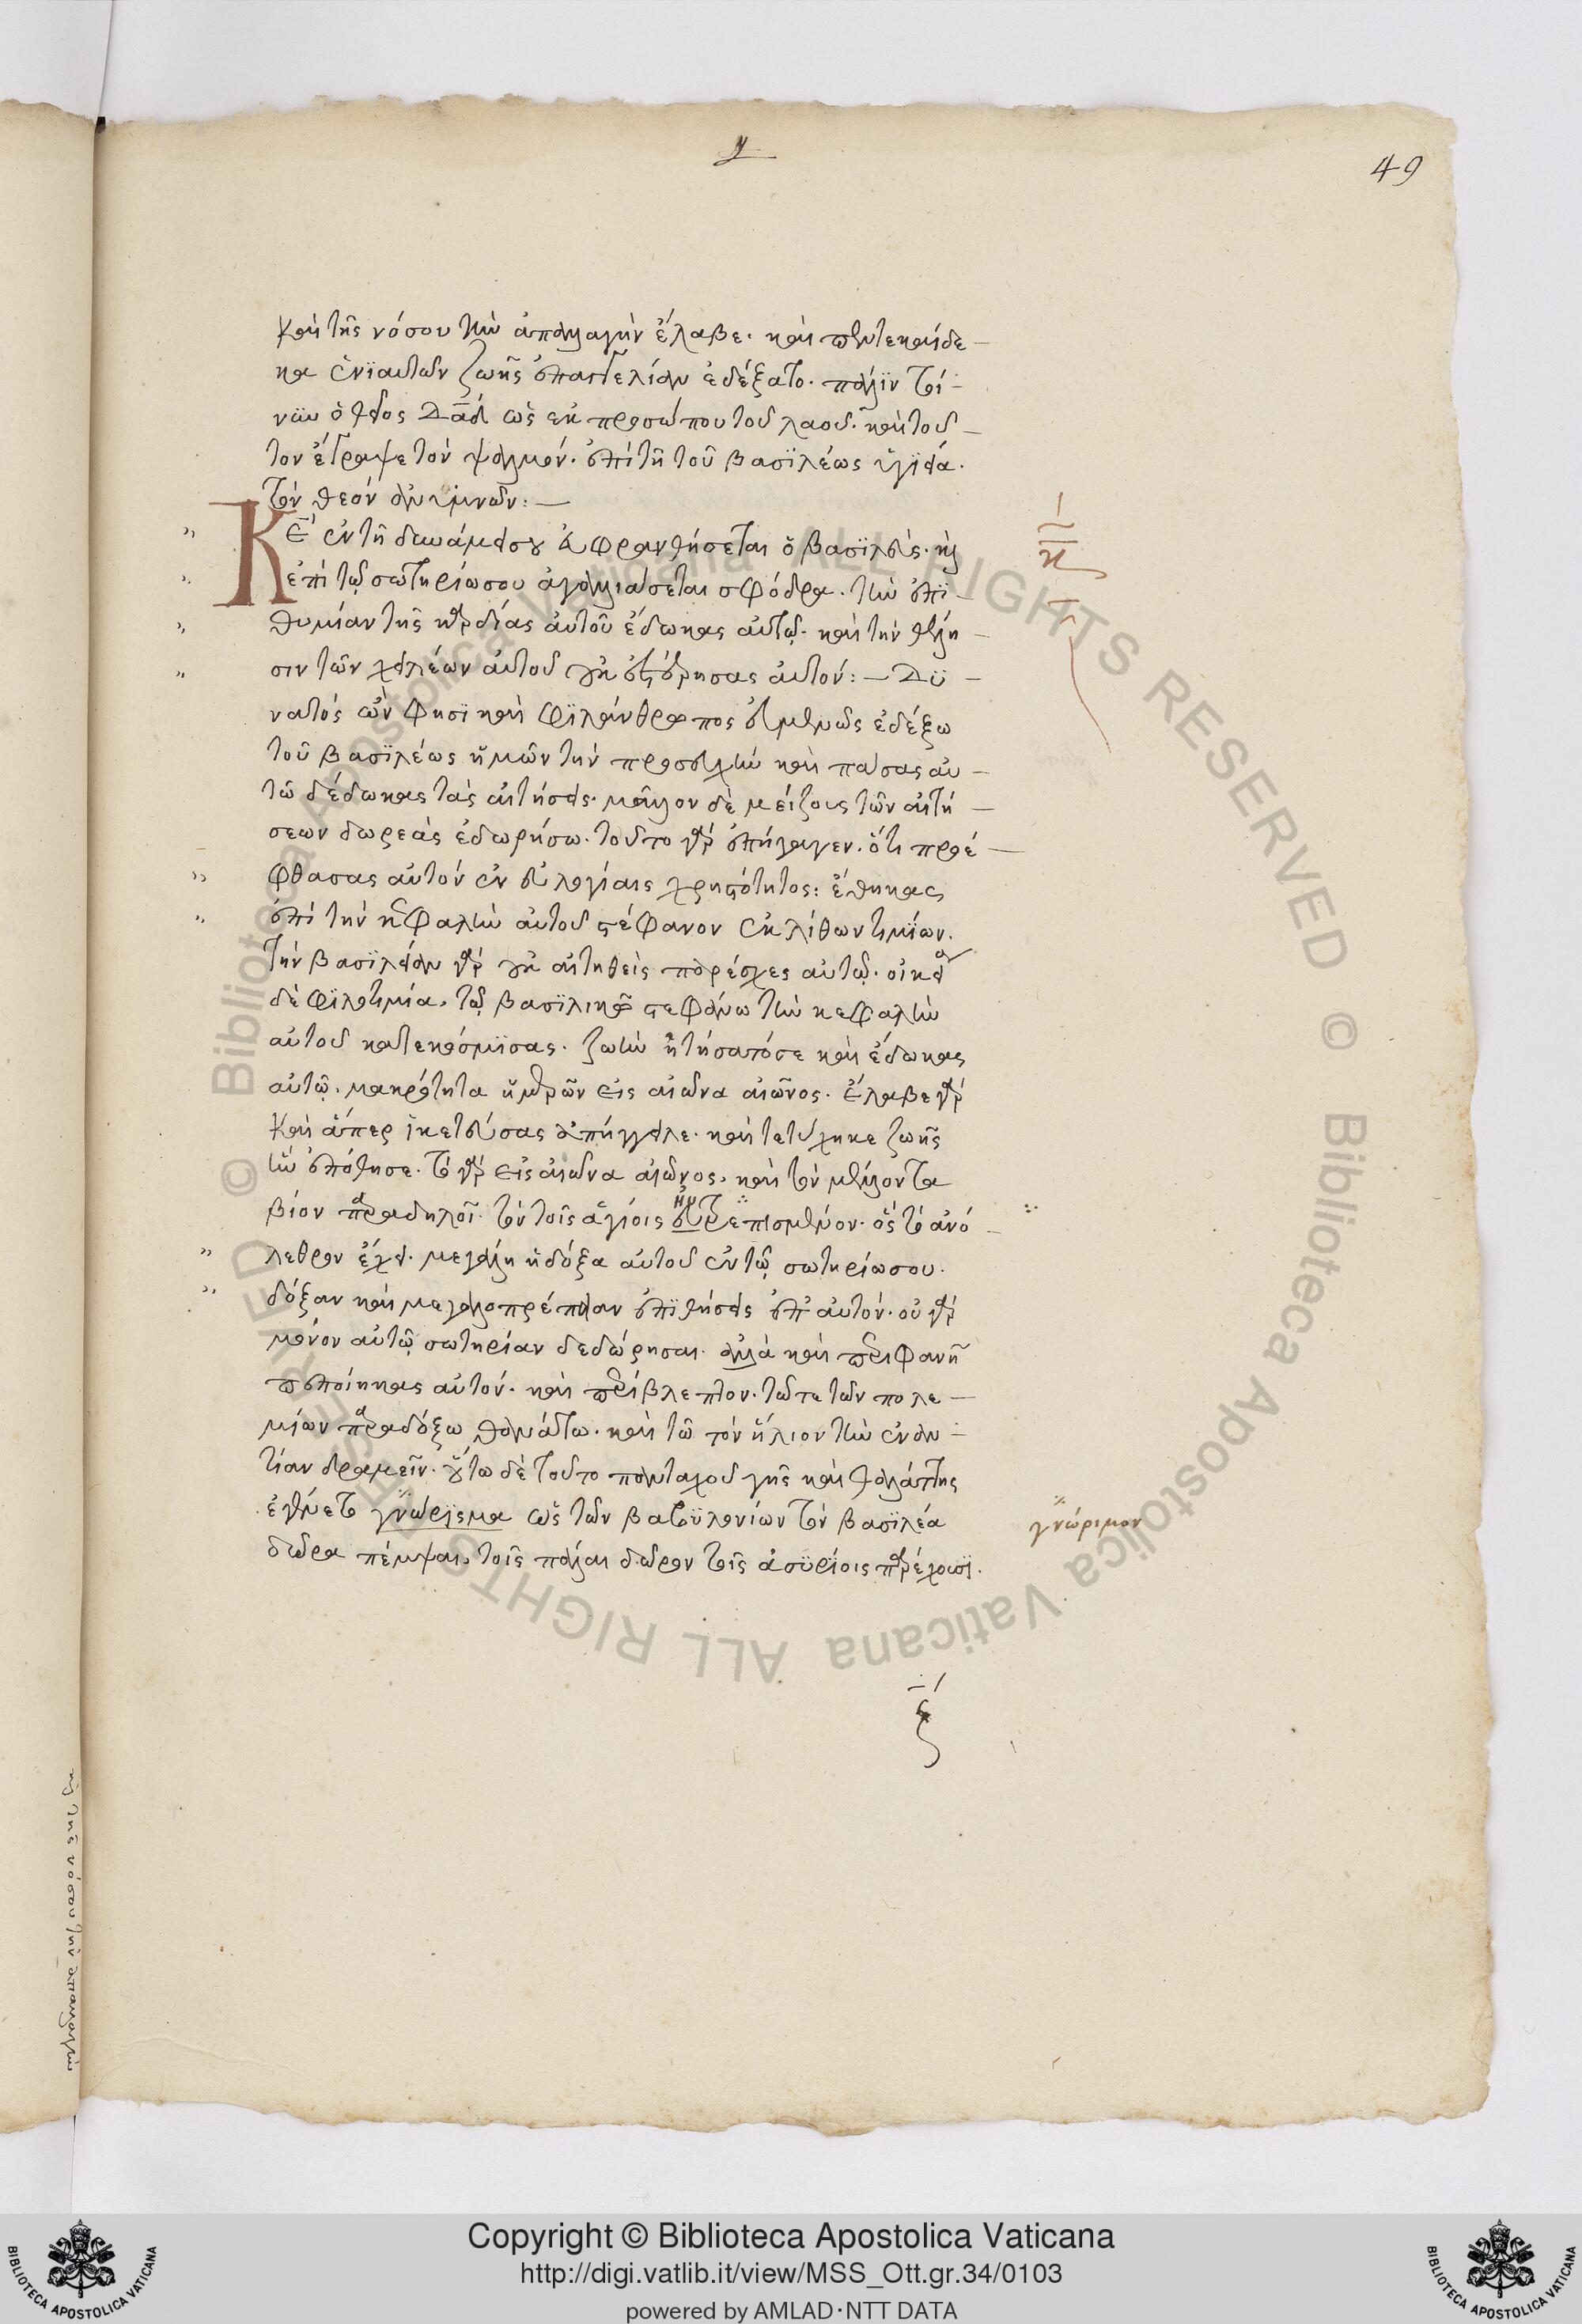 49
καὶ τῆς νόσου τὴν ἀπαλλαγὴν ἔλαβε· καὶ πεντεκαίδε
κα ἐνϊαυτῶν ζωῆς ἐπαγγελίαν ἐδέξατο· πάλϊν
ὁ θεῖος Δαδ ὡς εκ προσώπου τοῦ λαοῦ· καὶ τοῦ
τον ἔγραψε τὸν ψαλμόν· ἐπὶ τῆ τοῦ βασϊλέως ὑγϊεία·
τὸν θεὸν ἀνυμνῶν:—
Κε ἐν τῆ δυνάμει σου εὐφρανθήσεται ὁ βασϊλεὺς· κὶ
κ
ἐπὶ τῷ σωτηρίω σου ἀγαλλιάσεται σφόδρα· τὴν ἐπϊ
θυμίαν τῆς καρδίας αὐτοῦ ἔδωκας αὐτῷ· καὶ τὴν θέλη
σιν τῶν χειλέων αὐτοῦ οὐκ ἐστέρησας αὐτόν:— Δϋ
νατὸς ὢν φησϊ καὶ φϊλάνθρωπος εὐμενῶς ἐδέξω
τοῦ βασϊλέως ἡμῶν τὴν προσευχὴν καὶ πάσας αὐ
τῶ δέδωκας τὰς αἰτήσεις· μᾶλλον δὲ μείζους τῶν αἰτή
σεων δωρεὰς ἐδωρήσω· τοῦτο γὰρ ἐπήγαγεν· ὅτι προέ
φθασας αὐτὸν ἐν εὐλογίαις χρηστότητος: ἔθηκας
ἐπὶ τὴν κεφαλὴν αὐτοῦ στέφανον ἐκ λίθων τιμίων·
τὴν βασϊλείαν γὰρ οὐκ αἰτηθεὶς παρέσχες αὐτῷ· οἰκεία
δὲ φϊλοτιμία· τῷ βασϊλικῶ στεφάνω τὴν κεφαλὴν
αὐτοῦ κατεκόσμϊσας· ζωὴν ἠτήσατό σε καὶ ἔδωκας
αὐτῷ· μακρότητα ἡμερῶν εἰς αἰῶνα αἰῶνος· ἔλαβε γὰρ
καὶ ἅπερ ἱκετεύσας ἐπήγγειλε· καὶ τετύχηκε ζωῆς
ἣν ἐπόθησε· τὸ γὰρ εἰς αἰῶνα αἰῶνος· καὶ τὸν μέλλοντα
βίον παραδηλοῖ· τὸν τοῖς ἁγίοις εὐτρεπισμένον· ὃς τὸ ἀνό
λεθρον ἔχει· μεγάλη ἡ δόξα αὐτοῦ ἐν τῷ σωτηρίω σου·
δόξαν καὶ μεγαλοπρέπειαν ἐπϊθήσεις ἐπ᾽ αὐτόν· οὐ γὰρ
μόνον αὐτῷ σωτηρίαν δεδώρησαι· ἀλλὰ καὶ περιφανῆ
πεποίηκας αὐτόν· καὶ περίβλεπτον· τῶ τε τῶν πολε
μίων παραδόξω θανάτω· καὶ τῶ τὸν ἥλιον τὴν ἐναν
τίαν δραμεῖν· οὕτω δὲ τοῦτο πανταχοῦ γῆς καὶ θαλάττης
ἐγένετο γνώρϊσμα ὡς τῶν βαβϋλονίων τὸν βασϊλέα
γνώριμον
δῶρα πέμψαι· τοῖς πάλαι δῶρον τοῖς ἀσϋρίοις παρέχουσϊ·
Copyright © Biblioteca Apostolica Vaticana
http://digi.vatlib.it/view/MSS_Ott.gr.34/0103
powered by AMLAD·NTT DATA